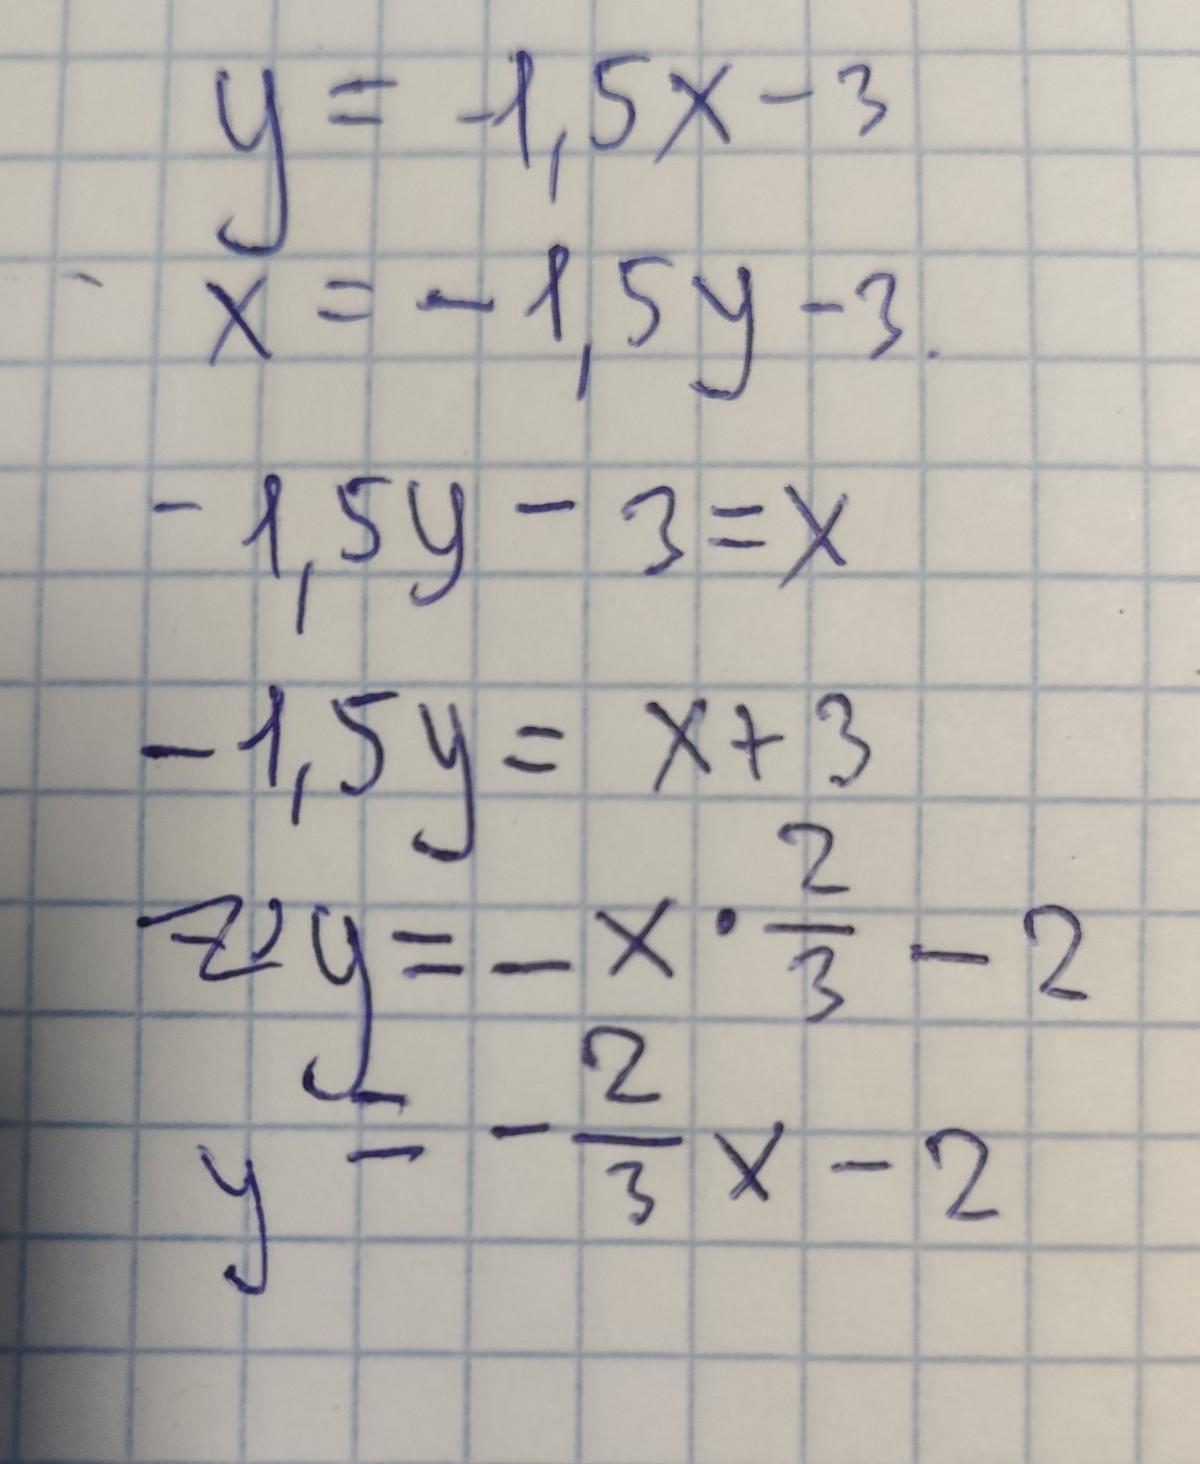 y = -1,5x - 3
x = -1,5y - 3.
-1,5y - 3 = x
-1,5y = x + 3
y = -x · 2/3 - 2
y = -2/3 x - 2